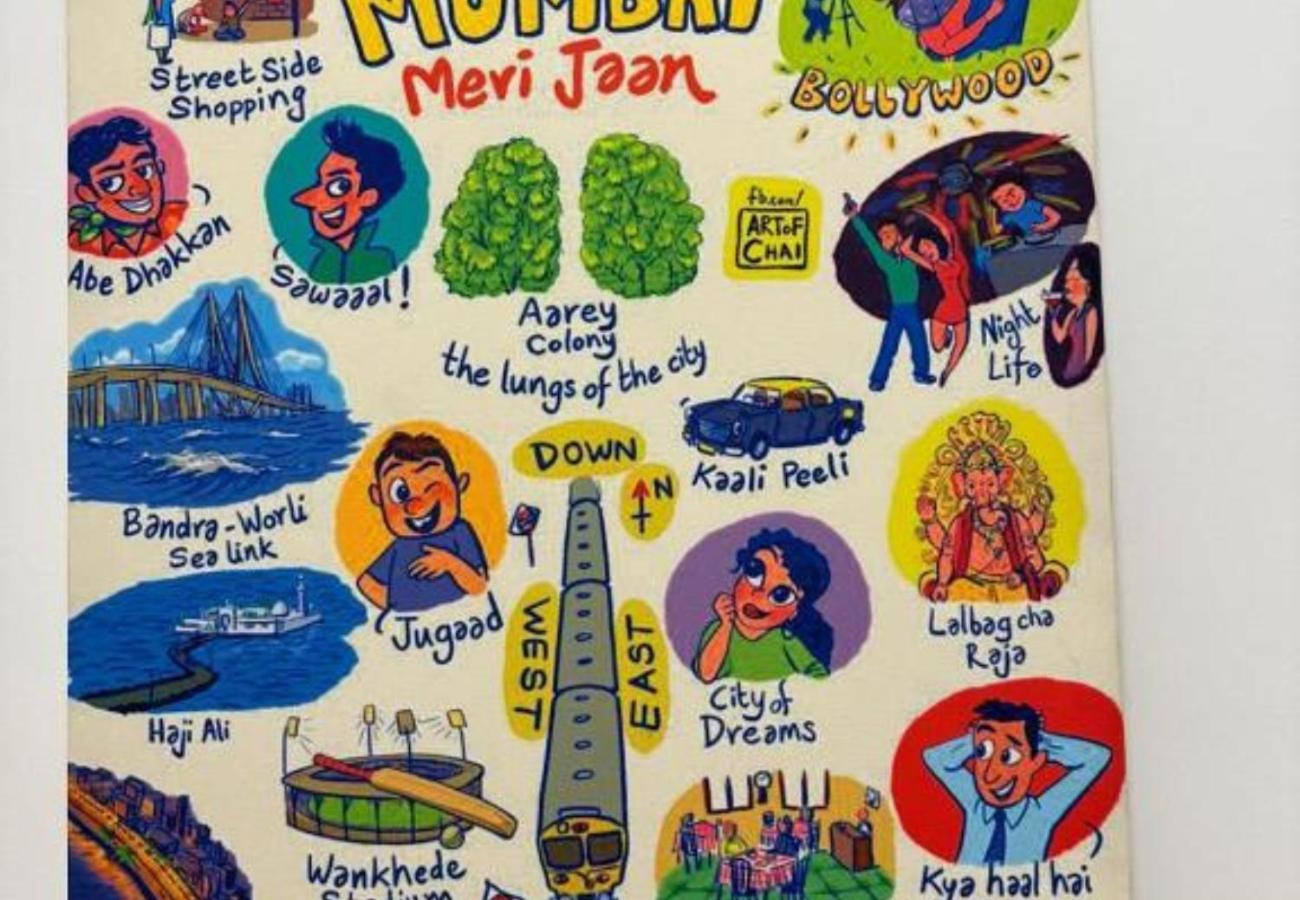 MUMBAI
Meri Jaan
Street Side
Shopping
BOLLYWOOD
Abe Dhakkan
Sawaaal!
Aarey
Colony
the lungs of the city
fb.com/
ART OF
CHAI
Night
Life
Bandra-Worli
Sea link
Jugaad
DOWN
N
WEST
EAST
Kaali Peeli
Lalbag cha
Raja
Haji Ali
City of
Dreams
Wankhede
Stadium
Kya haal hai